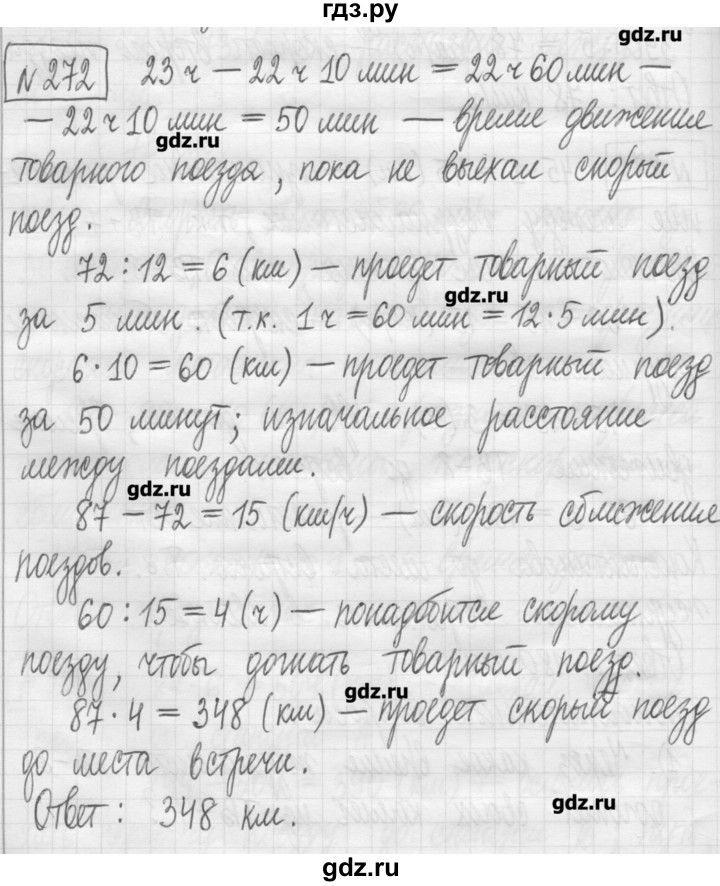 гдз.ру
gdz.ru
№ 272 23 ч – 22 ч 10 мин = 22 ч 60 мин –
– 22 ч 10 мин = 50 мин — время движения
gdz.ru
товарного поезда, пока не выехал скорый
поезд.
72 : 12 = 6 (км) — проедет товарный поезд
gdz.ru
за 5 мин. (т.к. 1 ч = 60 мин = 12·5 мин).
6·10 = 60 (км) — проедет товарный поезд
за 50 минут; изначальное расстояние
между поездами.
gdz.ru
87 – 72 = 15 (км/ч) — скорость сближения
поездов.
60 : 15 = 4 (ч) — понадобится скорому
поезду, чтобы догнать товарный поезд.
gdz.ru
87·4 = 348 (км) — проедет скорый поезд
до места встречи.
Ответ: 348 км.
gdz.ru
gdz.ru